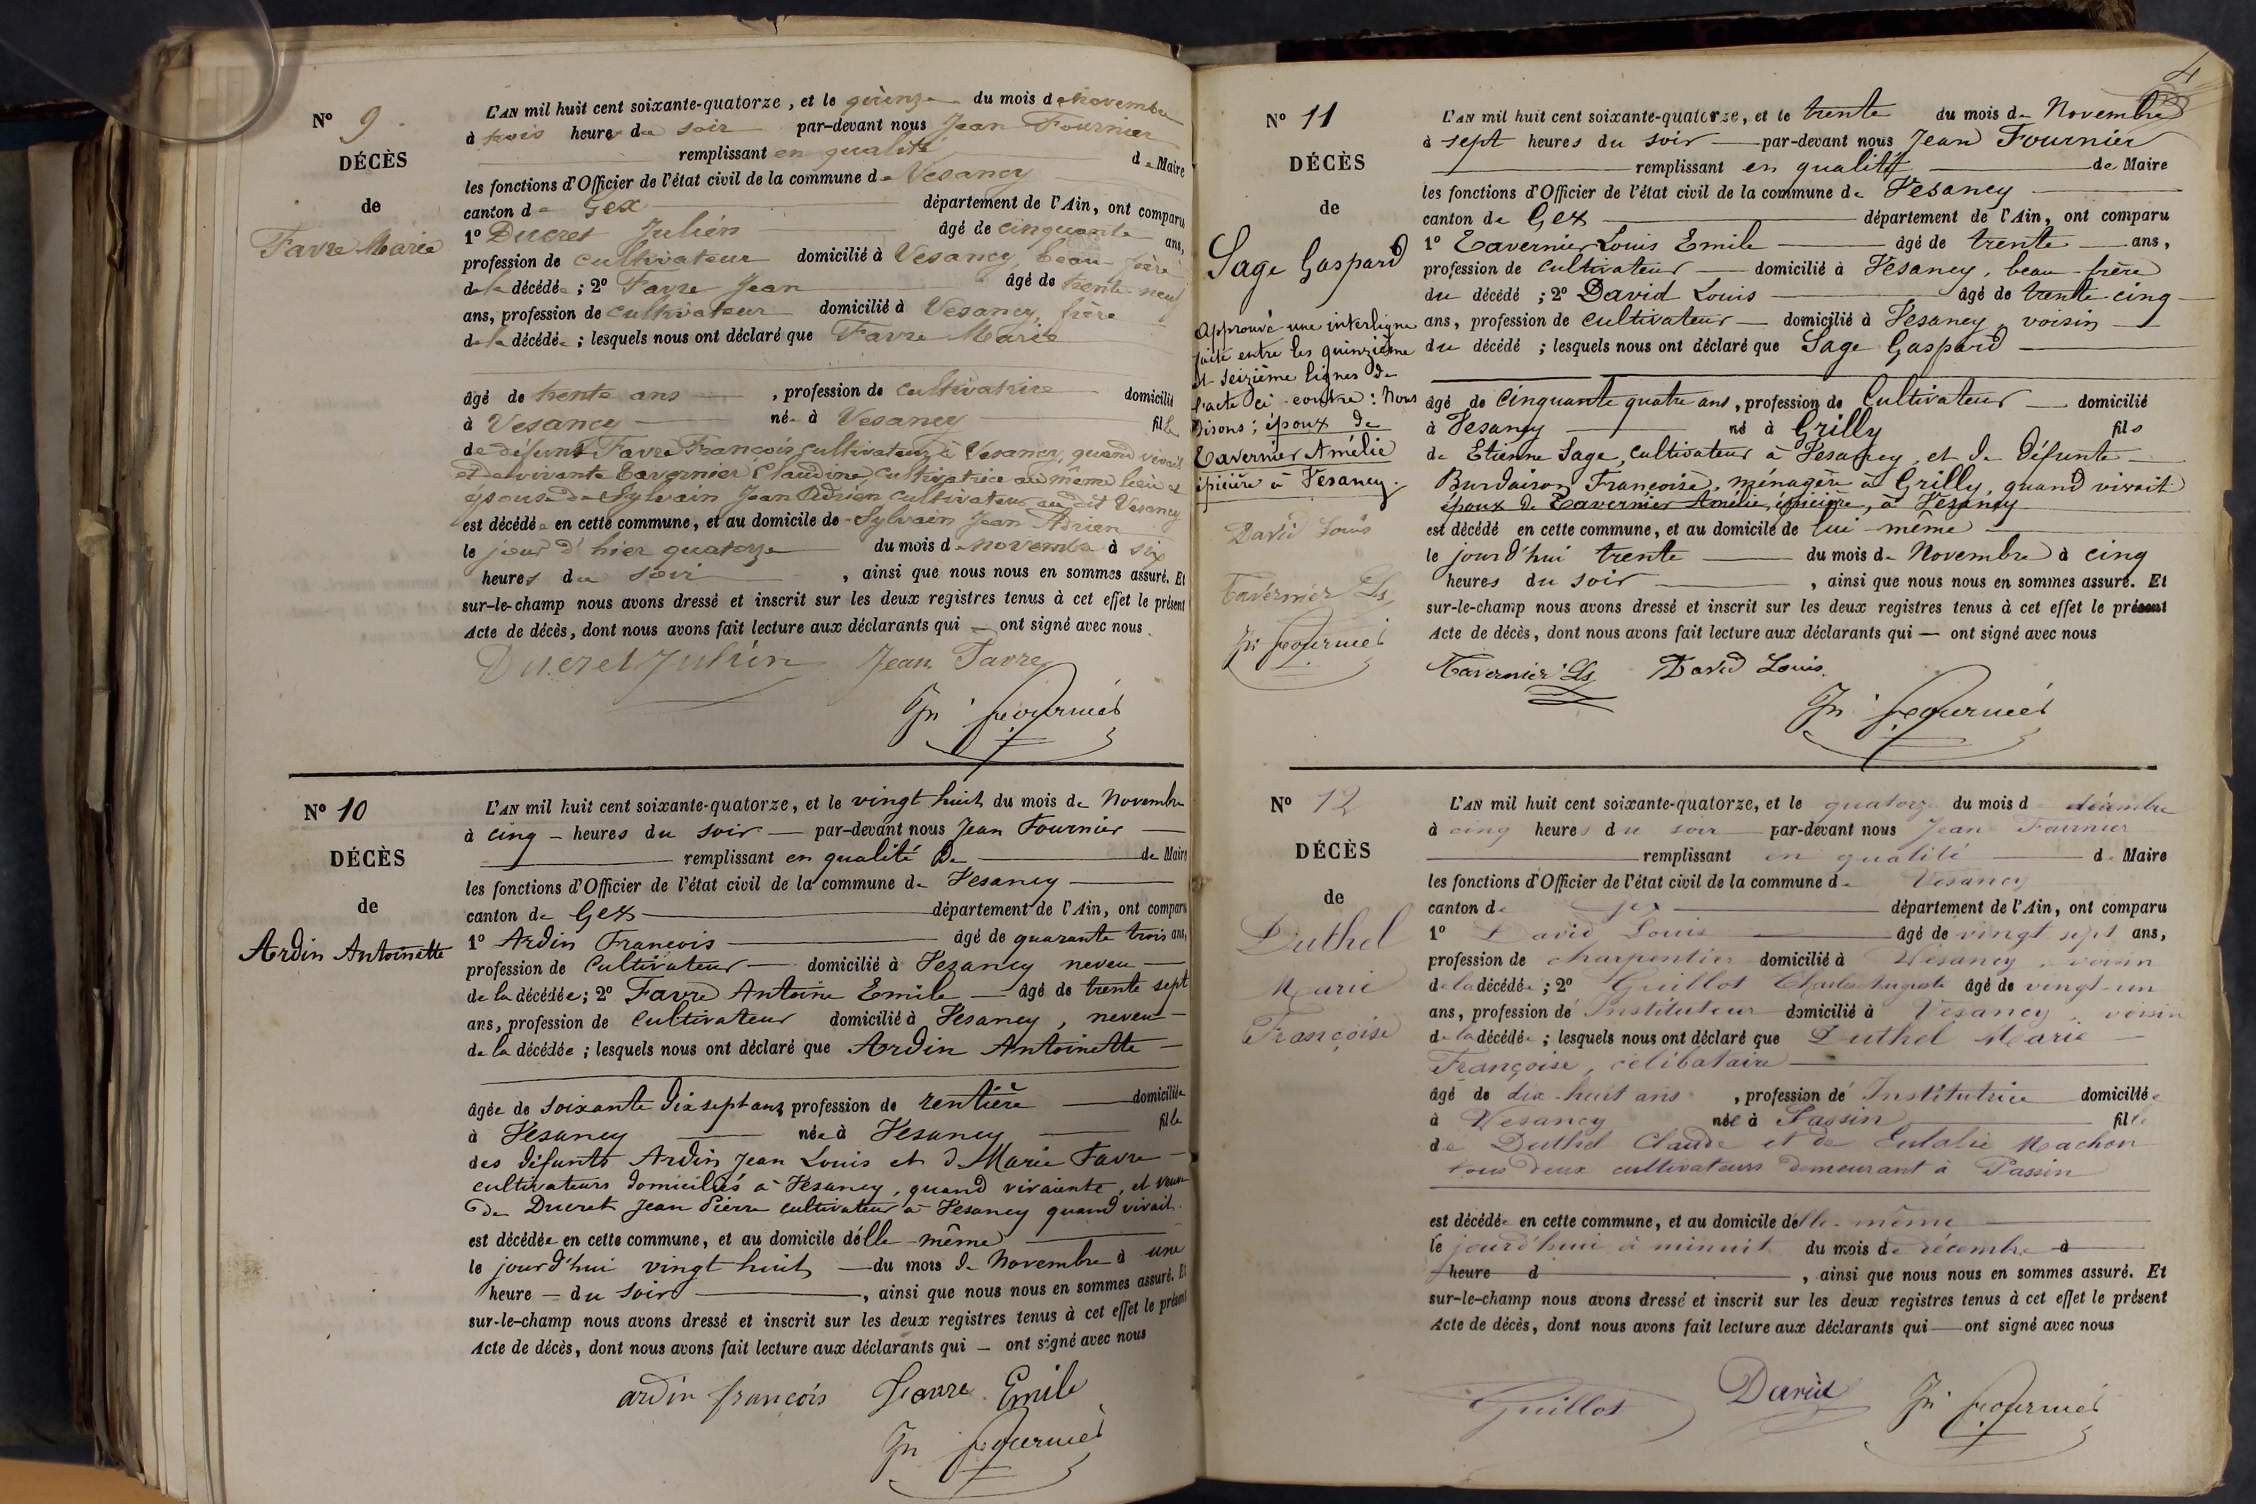 N° 9
DÉCÈS
de
Favre Marie
L'AN mil huit cent soixante-quatorze, et le quinze du mois de Novembre
à trois heures du soir par-devant nous Jean Fournier
remplissant en qualité de Maire
les fonctions d'Officier de l'état civil de la commune de Vesancy
canton de Gex département de l'Ain, ont comparu
1° Ducret Julien âgé de cinquante ans,
profession de cultivateur domicilié à Vesancy, beau-frère
de la décédée ; 2° Favre Jean âgé de trente-neuf
ans, profession de cultivateur domicilié à Vesancy, frère
de la décédée ; lesquels nous ont déclaré que Favre Marie
âgé de trente ans , profession de cultivatrice domicilié
à Vesancy née à Vesancy fille
de défunt Favre François cultivateur à Vesancy, quand vivait
et de vivante Tavernier Claudine, cultivatrice au même lieu et
épouse de Sylvain Jean Adrien cultivateur au dit Vesancy
est décédée en cette commune, et au domicile de Sylvain Jean Adrien
le jour d'hier quatorze du mois de novembre à six
heures du soir , ainsi que nous nous en sommes assuré. Et
sur-le-champ nous avons dressé et inscrit sur les deux registres tenus à cet effet le présent
Acte de décès, dont nous avons fait lecture aux déclarants qui — ont signé avec nous.
Ducret Julien Jean Favre
Jn Fournier
N° 10
DÉCÈS
de
Ardin Antoinette
L'AN mil huit cent soixante-quatorze, et le vingt huit du mois de Novembre
à cinq heures du soir par-devant nous Jean Fournier
remplissant en qualité de de Maire
les fonctions d'Officier de l'état civil de la commune de Vesancy
canton de Gex département de l'Ain, ont comparu
1° Ardin François âgé de quarante trois ans,
profession de Cultivateur domicilié à Vesancy neveu
de la décédée ; 2° Favre Antoine Emile âgé de trente sept
ans, profession de Cultivateur domicilié à Vesancy, neveu
de la décédée ; lesquels nous ont déclaré que Ardin Antoinette
âgée de soixante dix sept ans, profession de rentière domiciliée
à Vesancy née à Vesancy fille
des défunts Ardin Jean Louis et de Marie Favre
cultivateurs domiciliés à Vesancy, quand vivaiente, et veuve
de Ducret Jean Pierre cultivateur à Vesancy quand vivait.
est décédée en cette commune, et au domicile d'elle-même
le jourd'hui vingt huit du mois de Novembre à une
heure du soir , ainsi que nous nous en sommes assuré. Et
sur-le-champ nous avons dressé et inscrit sur les deux registres tenus à cet effet le présent
Acte de décès, dont nous avons fait lecture aux déclarants qui — ont signé avec nous
ardin françois Favre Emile
Jn Fournier
4
N° 11
DÉCÈS
de
Sage Gaspard
Approuvé une interligne
faite entre les quinzième
et seizième lignes de
l'acte ci-contre : Nous
Disons ; époux de
Tavernier Amélie
épicière à Vesancy.
David Louis
Tavernier Ls
Jn Fournier
L'AN mil huit cent soixante-quatorze, et le trente du mois de Novembre
à sept heures du soir par-devant nous Jean Fournier
remplissant en qualité de Maire
les fonctions d'Officier de l'état civil de la commune de Vesancy
canton de Gex département de l'Ain, ont comparu
1° Tavernier Louis Emile âgé de trente ans,
profession de cultivateur domicilié à Vesancy, beau-frère
du décédé ; 2° David Louis âgé de trente cinq
ans, profession de cultivateur domicilié à Vesancy, voisin
du décédé ; lesquels nous ont déclaré que Sage Gaspard
âgé de cinquante quatre ans, profession de Cultivateur domicilié
à Vesancy né à Grilly fils
de Etienne Sage, cultivateur à Vesancy, et de défunte
Burdairon Françoise, ménagère à Grilly, quand vivait
époux de Tavernier Amélie, épicière, à Vesancy
est décédé en cette commune, et au domicile de lui-même
le jourd'hui trente du mois de Novembre à cinq
heures du soir , ainsi que nous nous en sommes assuré. Et
sur-le-champ nous avons dressé et inscrit sur les deux registres tenus à cet effet le présent
Acte de décès, dont nous avons fait lecture aux déclarants qui — ont signé avec nous
Tavernier Ls David Louis.
Jn Fournier
N° 12
DÉCÈS
de
Duthel
Marie
Françoise
L'AN mil huit cent soixante-quatorze, et le quatorze du mois d décembre
à cinq heures du soir par-devant nous Jean Fournier
remplissant en qualité de Maire
les fonctions d'Officier de l'état civil de la commune de Vesancy
canton de Gex département de l'Ain, ont comparu
1° David Louis âgé de vingt sept ans,
profession de charpentier domicilié à Vesancy, voisin
de la décédée ; 2° Guillot Charles Auguste âgé de vingt-un
ans, profession de Instituteur domicilié à Vesancy, voisin
de la décédée ; lesquels nous ont déclaré que Duthel Marie
Françoise, célibataire
âgé de dix-huit ans , profession de Institutrice domiciliée
à Vesancy née à Passin fille
de Duthel Claude et de Eulalie Machon
tous deux cultivateurs demeurant à Passin
est décédée en cette commune, et au domicile d'elle-même
le jourd'hui à minuit du mois de décembre à
heure d , ainsi que nous nous en sommes assuré. Et
sur-le-champ nous avons dressé et inscrit sur les deux registres tenus à cet effet le présent
Acte de décès, dont nous avons fait lecture aux déclarants qui — ont signé avec nous
Guillot David Jn Fournier